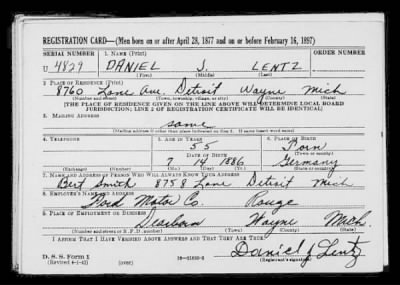 REGISTRATION CARD—(Men born on or after April 28, 1877 and on or before February 16, 1897)
SERIAL NUMBER 1. NAME (Print) ORDER NUMBER
U 4829 DANIEL J. LENTZ
(First) (Middle) (Last)
2. PLACE OF RESIDENCE (Print)
8760 Lane Ave. Detroit Wayne Mich
(Number and street) (Town, township, village, or city) (County) (State)
[THE PLACE OF RESIDENCE GIVEN ON THE LINE ABOVE WILL DETERMINE LOCAL BOARD
JURISDICTION; LINE 2 OF REGISTRATION CERTIFICATE WILL BE IDENTICAL]
3. MAILING ADDRESS
same
[Mailing address if other than place indicated on line 2. If same insert word same]
4. TELEPHONE 5. AGE IN YEARS 6. PLACE OF BIRTH
55
DATE OF BIRTH (Town or county)
7 14 1886 Germany
(Exchange) (Number) (Mo.) (Day) (Yr.) (State or country)
7. NAME AND ADDRESS OF PERSON WHO WILL ALWAYS KNOW YOUR ADDRESS
Bert Smith 8758 Lane Detroit Mich
8. EMPLOYER'S NAME AND ADDRESS
Ford Motor Co. Rouge
9. PLACE OF EMPLOYMENT OR BUSINESS
Dearborn Wayne Mich.
(Number and street or R. F. D. number) (Town) (County) (State)
I AFFIRM THAT I HAVE VERIFIED ABOVE ANSWERS AND THAT THEY ARE TRUE.
Daniel J Lentz
D. S. S. Form 1
(Revised 4-1-42) (over) (Registrant's signature)